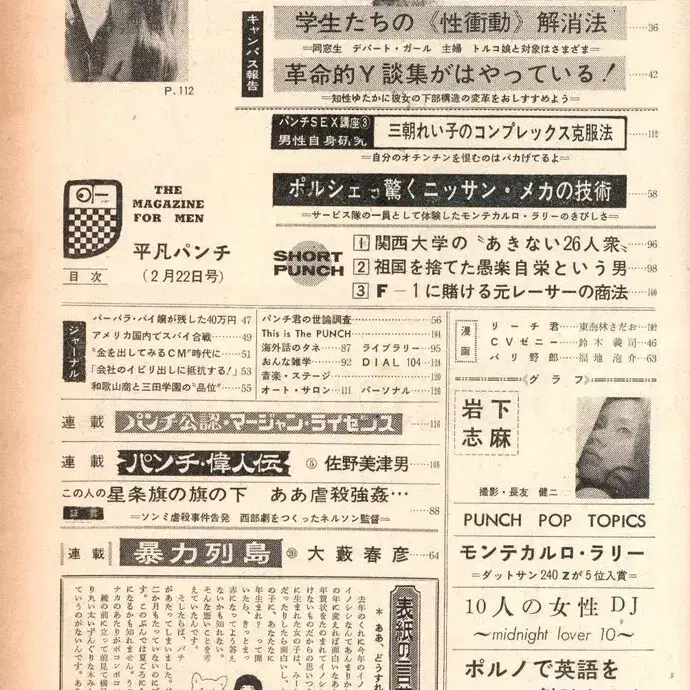 P.112
キャンパス報告
学生たちの《性衝動》解消法 36
=同窓生 デパート・ガール 主婦 トルコ娘と対象はさまざま=
革命的Y談集がはやっている! 42
=知性ゆたかに彼女の下部構造の変革をおしすすめよう=
パンチSEX講座③
男性自身研究
三朝れい子のコンプレックス克服法
=自分のオチンチンを恨むのはバカげてるよ=
ポルシェも驚くニッサン・メカの技術 58
=サービス隊の一員として体験したモンテカルロ・ラリーのきびしさ=
THE
MAGAZINE
FOR MEN
平凡パンチ
目次
(2月22日号)
SHORT
PUNCH
1 関西大学の〝あきない26人衆〟 96
2 祖国を捨てた愚楽自栄という男 98
3 F-1に賭ける元レーサーの商法 100
ジャーナル
バーバラ・バイ嬢が残した40万円 47
アメリカ国内でスパイ合戦 49
〝金を出してみるCM〟時代に 51
「会社のイビリ出しに抵抗する!」 53
和歌山商と三田学園の〝品位〟 55
パンチ君の世論調査 56
This is The PUNCH 104
海外話のタネ 87 ライブラリー 95
おんな雑学 92 DIAL 104 124
音楽・ステージ 120
オート・サロン 111 パーソナル 126
漫画
リーチ君 東海林さだお 102
CVゼニー 鈴木義司 46
パリ野郎 福地泡介 63
《グラフ》
岩下
志麻
撮影・長友健二
連載 パンチ公認・マージャン・ライセンス 110
連載 パンチ・偉人伝 ⑤ 佐野美津男 108
この人の
証言
星条旗の旗の下 ああ虐殺強姦… 88
=ソンミ虐殺事件告発 西部劇をつくったネルソン監督=
連載 暴力列島 大藪春彦 64
PUNCH POP TOPICS
モンテカルロ・ラリー
=ダットサン240Zが5位入賞=
10人の女性DJ
~midnight lover 10~
ポルノで英語を
表紙の言葉